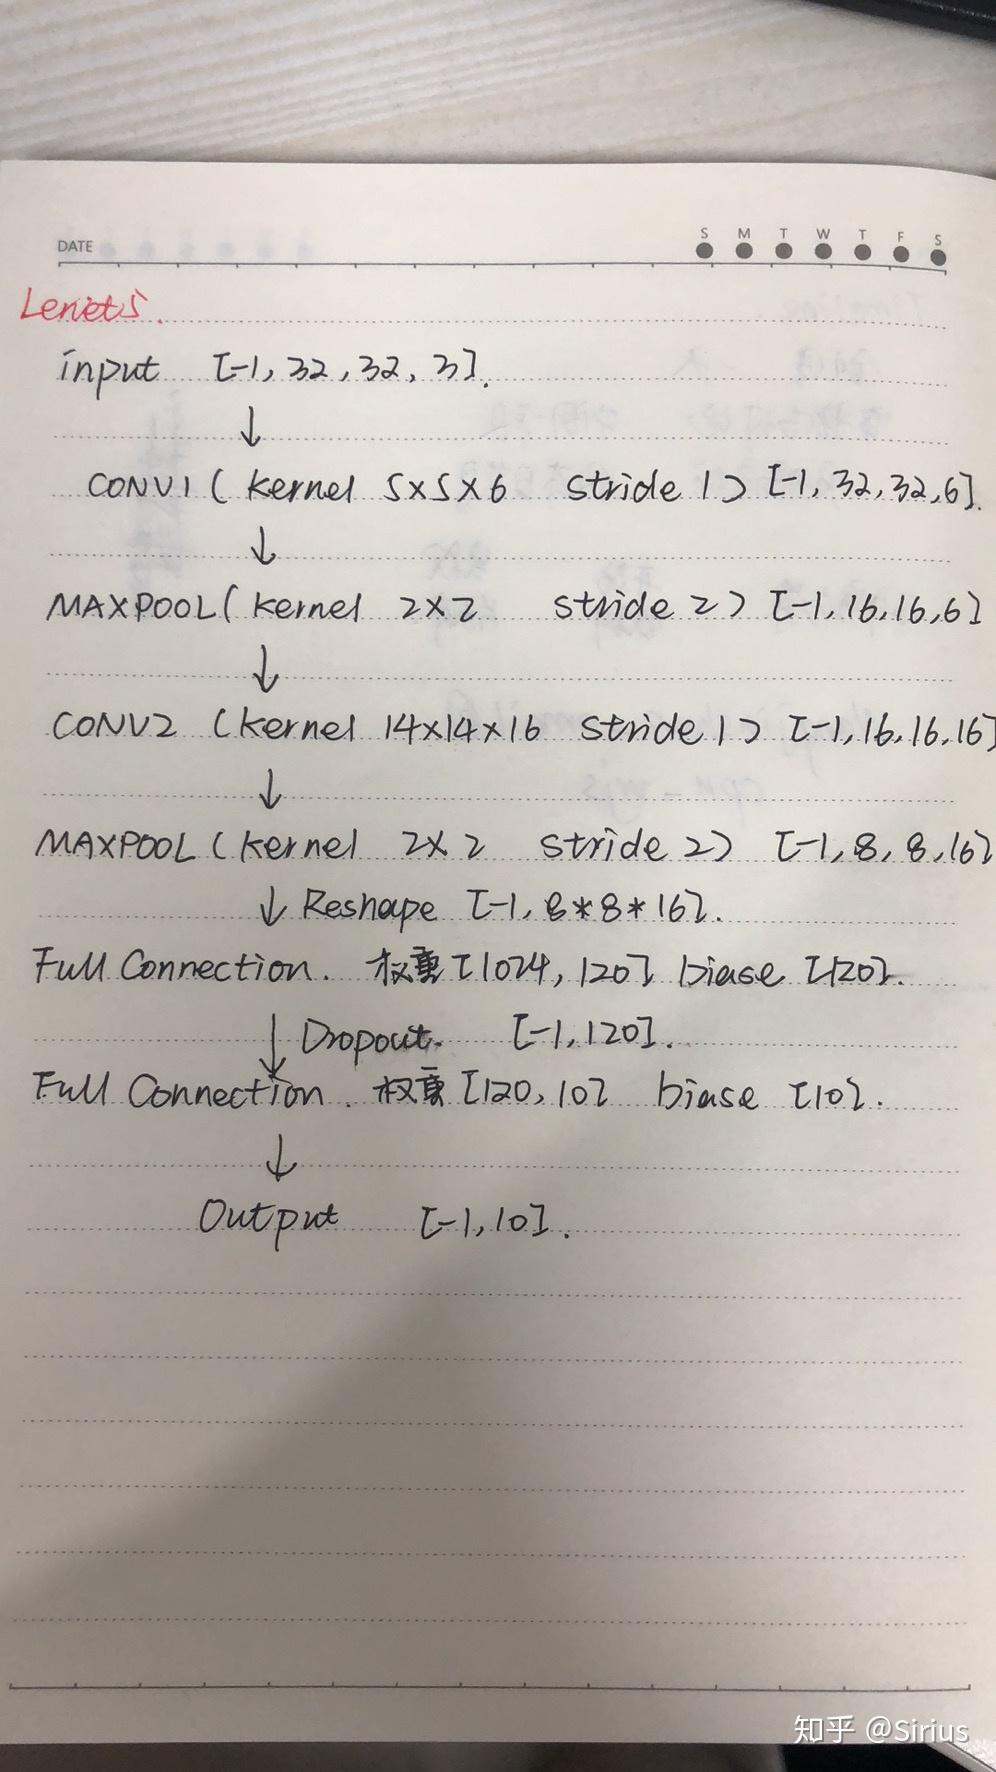 DATE
S M T W T F S
Lenet5.
input [-1, 32, 32, 3].
↓
CONV1 ( kernel 5×5×6 stride 1) [-1, 32, 32, 6].
↓
MAXPOOL( kernel 2×2 stride 2) [-1, 16, 16, 6]
↓
CONV2 (kernel 14×14×16 stride 1) [-1, 16, 16, 16]
↓
MAXPOOL (kernel 2×2 stride 2) [-1, 8, 8, 16]
↓ Reshape [-1, 8*8*16].
Full Connection. 权重 [1024, 120] biase [120].
↓ Dropout. [-1, 120].
Full Connection. 权重 [120, 10] biase [10].
↓
Output [-1, 10].
知乎 @Sirius